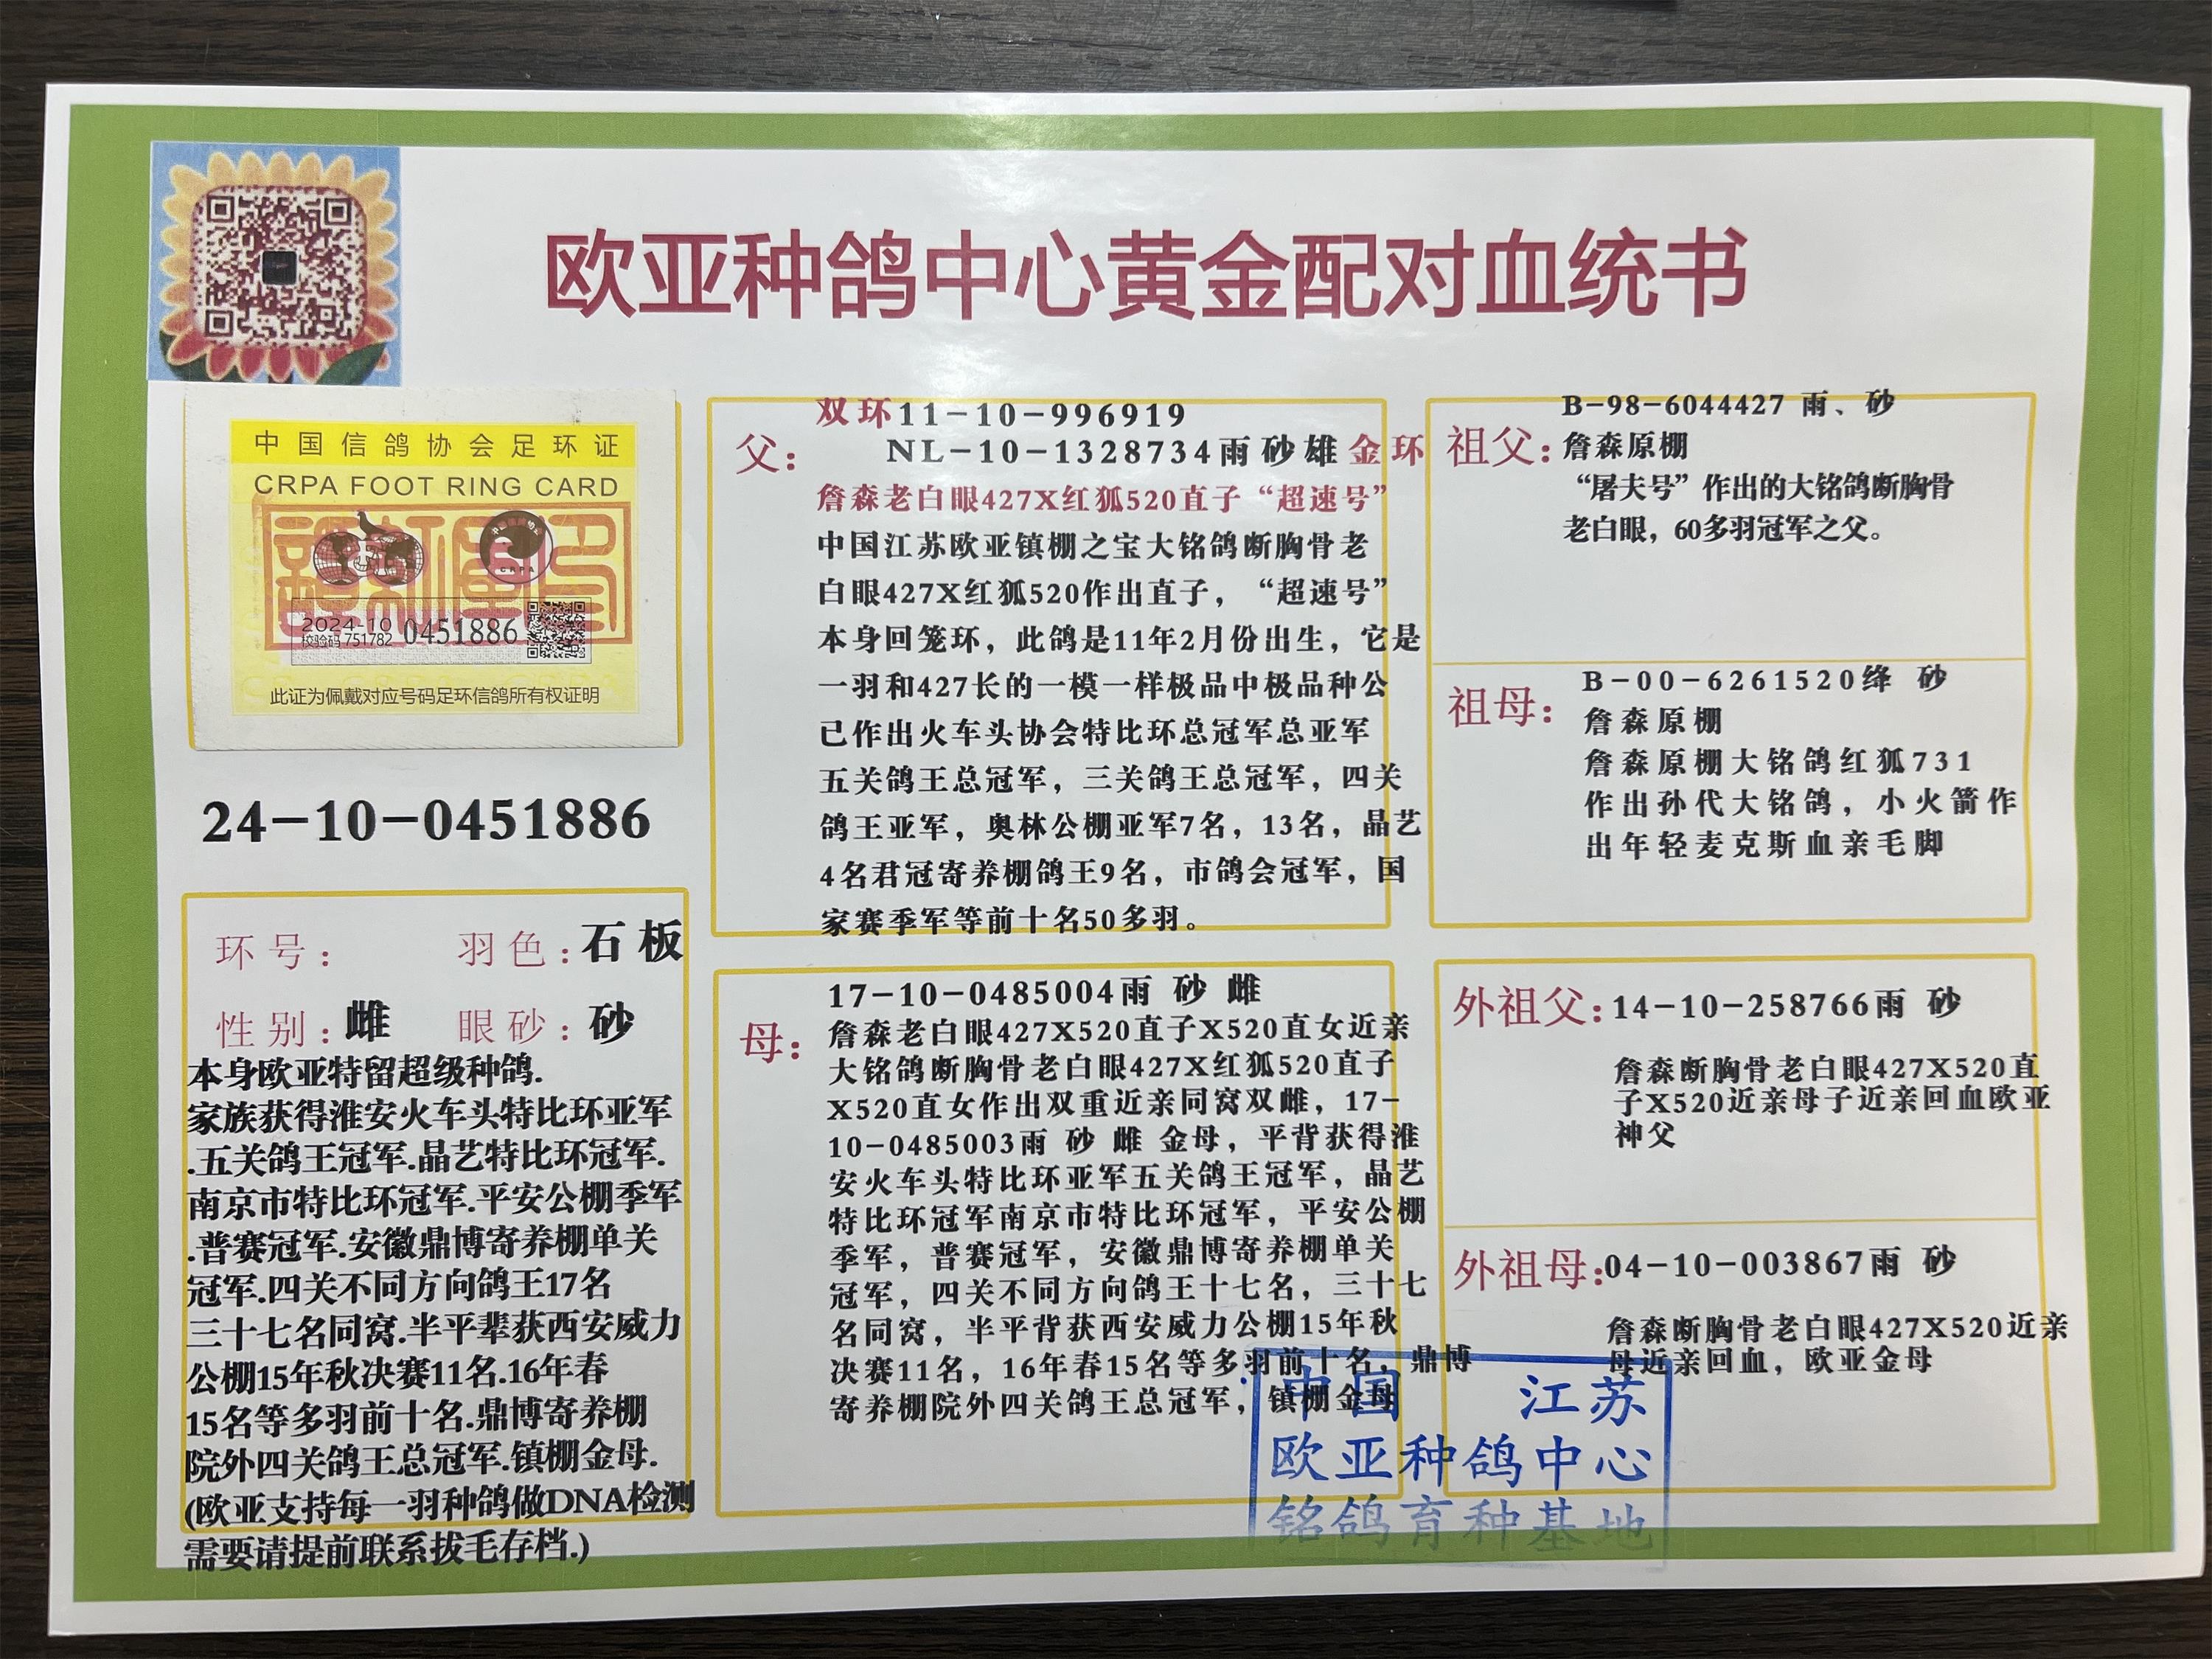 欧亚种鸽中心黄金配对血统书
中国信鸽协会足环证
CRPA FOOT RING CARD
CRPA
2024-10 0451886
校验码 751782
此证为佩戴对应号码足环信鸽所有权证明
24-10-0451886
环号：
羽色：石板
性别：雌
眼砂：砂
本身欧亚特留超级种鸽.
家族获得淮安火车头特比环亚军
.五关鸽王冠军.晶艺特比环冠军.
南京市特比环冠军.平安公棚季军
.普赛冠军.安徽鼎博寄养棚单关
冠军.四关不同方向鸽王17名
三十七名同窝.半平辈获西安威力
公棚15年秋决赛11名.16年春
15名等多羽前十名.鼎博寄养棚
院外四关鸽王总冠军.镇棚金母.
(欧亚支持每一羽种鸽做DNA检测
需要请提前联系拔毛存档.)
父：
双环11-10-996919
NL-10-1328734雨砂雄金环
詹森老白眼427X红狐520直子“超速号”
中国江苏欧亚镇棚之宝大铭鸽断胸骨老
白眼427X红狐520作出直子，“超速号”
本身回笼环，此鸽是11年2月份出生，它是
一羽和427长的一模一样极品中极品种公
已作出火车头协会特比环总冠军总亚军
五关鸽王总冠军，三关鸽王总冠军，四关
鸽王亚军，奥林公棚亚军7名，13名，晶艺
4名君冠寄养棚鸽王9名，市鸽会冠军，国
家赛季军等前十名50多羽。
母：
17-10-0485004雨 砂 雌
詹森老白眼427X520直子X520直女近亲
大铭鸽断胸骨老白眼427X红狐520直子
X520直女作出双重近亲同窝双雌，17-
10-0485003雨 砂 雌 金母，平背获得淮
安火车头特比环亚军五关鸽王冠军，晶艺
特比环冠军南京市特比环冠军，平安公棚
季军，普赛冠军，安徽鼎博寄养棚单关
冠军，四关不同方向鸽王十七名，三十七
名同窝，半平背获西安威力公棚15年秋
决赛11名，16年春15名等多羽前十名，鼎博
寄养棚院外四关鸽王总冠军，镇棚金母
祖父：
B-98-6044427 雨、砂
詹森原棚
“屠夫号”作出的大铭鸽断胸骨
老白眼，60多羽冠军之父。
祖母：
B-00-6261520绛 砂
詹森原棚
詹森原棚大铭鸽红狐731
作出孙代大铭鸽，小火箭作
出年轻麦克斯血亲毛脚
外祖父：14-10-258766雨 砂
詹森断胸骨老白眼427X520直
子X520近亲母子近亲回血欧亚
神父
外祖母：04-10-003867雨 砂
詹森断胸骨老白眼427X520近亲
母近亲回血，欧亚金母
中国 江苏
欧亚种鸽中心
铭鸽育种基地